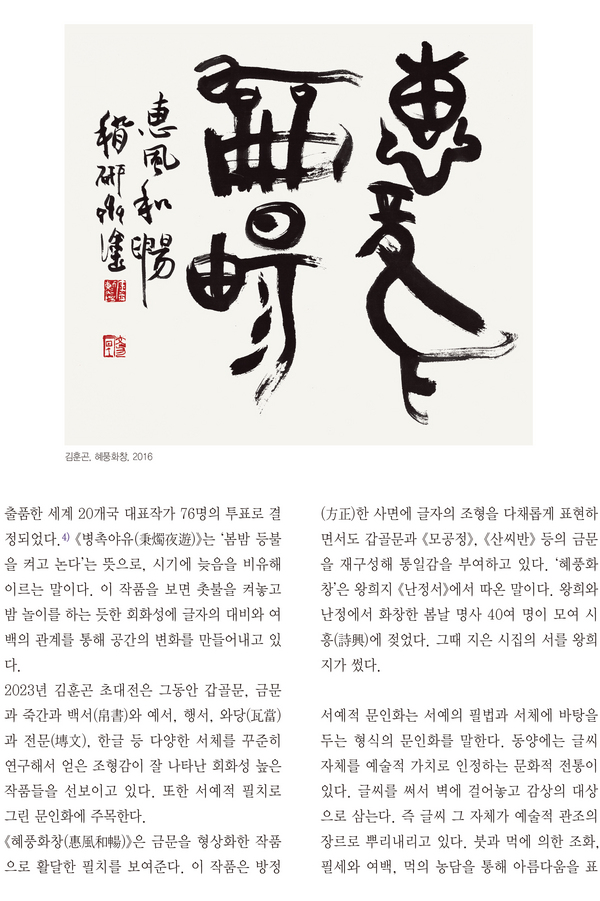 惠風
和暢
惠風和暢
김훈곤, 혜풍화창, 2016
출품한 세계 20개국 대표작가 76명의 투표로 결
정되었다.4) 《병촉야유(秉燭夜遊)》는 ‘봄밤 등불
을 켜고 논다’는 뜻으로, 시기에 늦음을 비유해
이르는 말이다. 이 작품을 보면 촛불을 켜놓고
밤 놀이를 하는 듯한 회화성에 글자의 대비와 여
백의 관계를 통해 공간의 변화를 만들어내고 있
다.
2023년 김훈곤 초대전은 그동안 갑골문, 금문
과 죽간과 백서(帛書)와 예서, 행서, 와당(瓦當)
과 전문(塼文), 한글 등 다양한 서체를 꾸준히
연구해서 얻은 조형감이 잘 나타난 회화성 높은
작품들을 선보이고 있다. 또한 서예적 필치로
그린 문인화에 주목한다.
《혜풍화창(惠風和暢)》은 금문을 형상화한 작품
으로 활달한 필치를 보여준다. 이 작품은 방정
(方正)한 사면에 글자의 조형을 다채롭게 표현하
면서도 갑골문과 《모공정》, 《산씨반》 등의 금문
을 재구성해 통일감을 부여하고 있다. ‘혜풍화
창’은 왕희지 《난정서》에서 따온 말이다. 왕희와
난정에서 화창한 봄날 명사 40여 명이 모여 시
흥(詩興)에 젖었다. 그때 지은 시집의 서를 왕희
지가 썼다.
서예적 문인화는 서예의 필법과 서체에 바탕을
두는 형식의 문인화를 말한다. 동양에는 글씨
자체를 예술적 가치로 인정하는 문화적 전통이
있다. 글씨를 써서 벽에 걸어놓고 감상의 대상
으로 삼는다. 즉 글씨 그 자체가 예술적 관조의
장르로 뿌리내리고 있다. 붓과 먹에 의한 조화,
필세와 여백, 먹의 농담을 통해 아름다움을 표